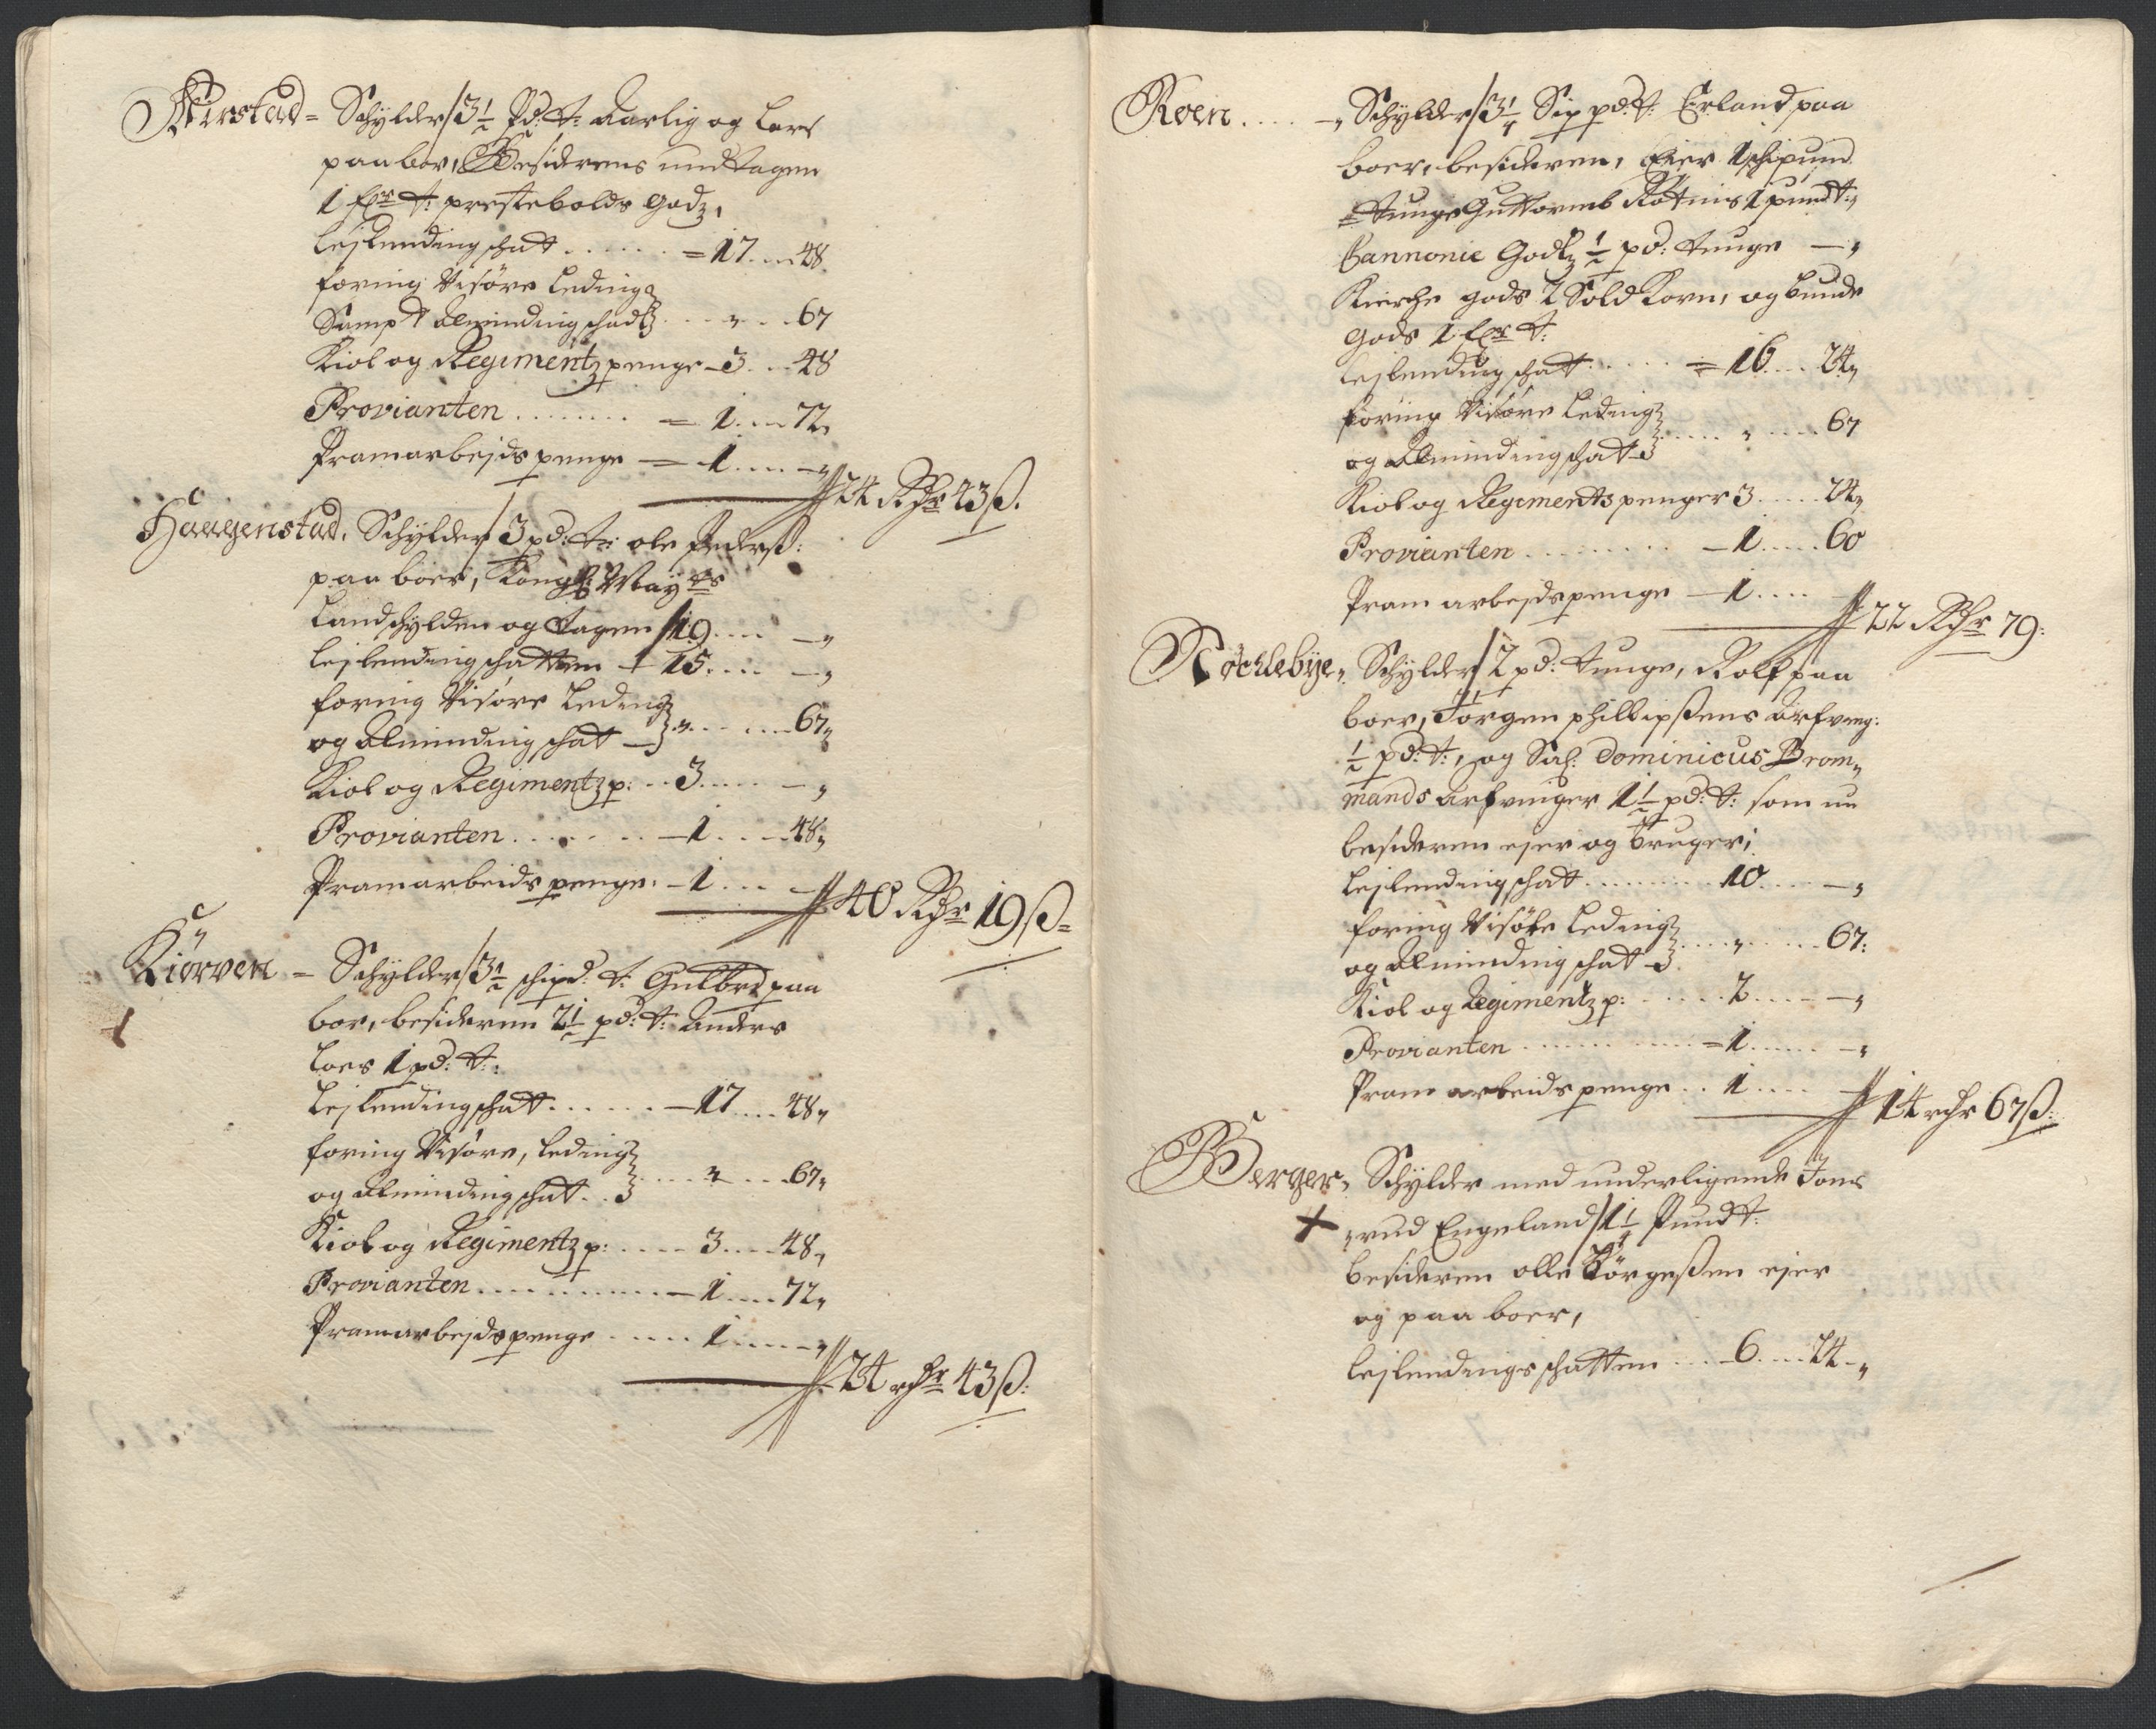 Kirstad = Schylder 3½ Pd: t: Aarlig og Lars
paabor, Besiderens undtagen
1 fr t: prestebolds godz,
Lejlending schatt . . . . . . = 17 . . . 48.
foring Visöre Leding
Sampt Alminding schatt . . . „ . . . 67
Kiol og Regimentz penge – 3 . . . 48
Provianten . . . . . . . = 1 . . . 72„
Pramarbejds penge — 1 . . . . – „
24 Rdr 43 ß.
Haagenstad, Schylder 3 pd: t: ole Pederß:
paa boer, Kongl: Mayts
Landschylden og tagen 19 . . . – „
Lejlending schatten – 15 . . . . – „
foring Visöre Leding
og Alminding schat – „ . . . . . 67„
Kiol og Regimentz p: . . 3 . . . . – „
Provianten . . . . . . . – 1 . . . . 48„
Pramarbeids penge: – 1 . . . –
40 Rdr 19 ß =
Kiörven = Schylder 3½ schipd: t: Gulbrd paa
bor, besideren 2½ pd: t: Anders
Loes 1 pd: t:
Lejlending schatt . . . . . . – 17 . . . 48„
foring Visöre, Leding
og Alminding schat . . . . . „ . . . . 67„
Kiol og Regimentz p: . . . . . 3 . . . . 48„
Provianten . . . . . . . . . . . – 1 . . . . 72„
Pramarbejds penge . . . . . 1 . . . . – „
24 rdr 43 ß:
Roen . . . . –„ Schylder 3¼ Sip pd: t: Erland paa
boer, besideren, Eier 1 schipund
tunge Guttormb Rotnis 1 pund t:„
Cannonie Godtz ½ pd: tunge – „
Kierche gods 2 Sold Korn, og bunde
Gods 1 fr t:
Lejlending schatt . . . . . = 16 . . . 24„
foring Visöre Leding
og Alminding schat . . . . . „ . . . . 67
Kiol og Regiments penger 3 . . . . 24„
Provianten . . . . . . . . . – 1 . . . . 60
Pram arbejds penge – 1 . . . . –
22 Rdr 79:
Röchlebÿe„ Schylder 2 pd: tunge, Rolf paa
boer, Jörgen phillipßens Arfving:
½ pd: t:, og Sal: Dominicus Brom„
mands Arfvinger 1½ pd: t: som nu
besideren ejer og bruger;
Lejlending schatt . . . . . . . . 10 . . . . – „
foring Visöre Leding
og Alminding schat . . . . „ . . . . 67:
Kiol og Regimentz p: . . . . . . 2 . . . . – „
Provianten . . . . . . . . . . = 1 . . . . – „
Pram arbeids penge . . 1 . . . . –
14 rdr 67 ß:
Berger„ Schylder med underligende Jons
„rud Engeland 1¼ Pund t:
besideren olle Börgeßen ejer
og paa boer,
Lejlendings schatten . . . – 6 . . . . 24 – „